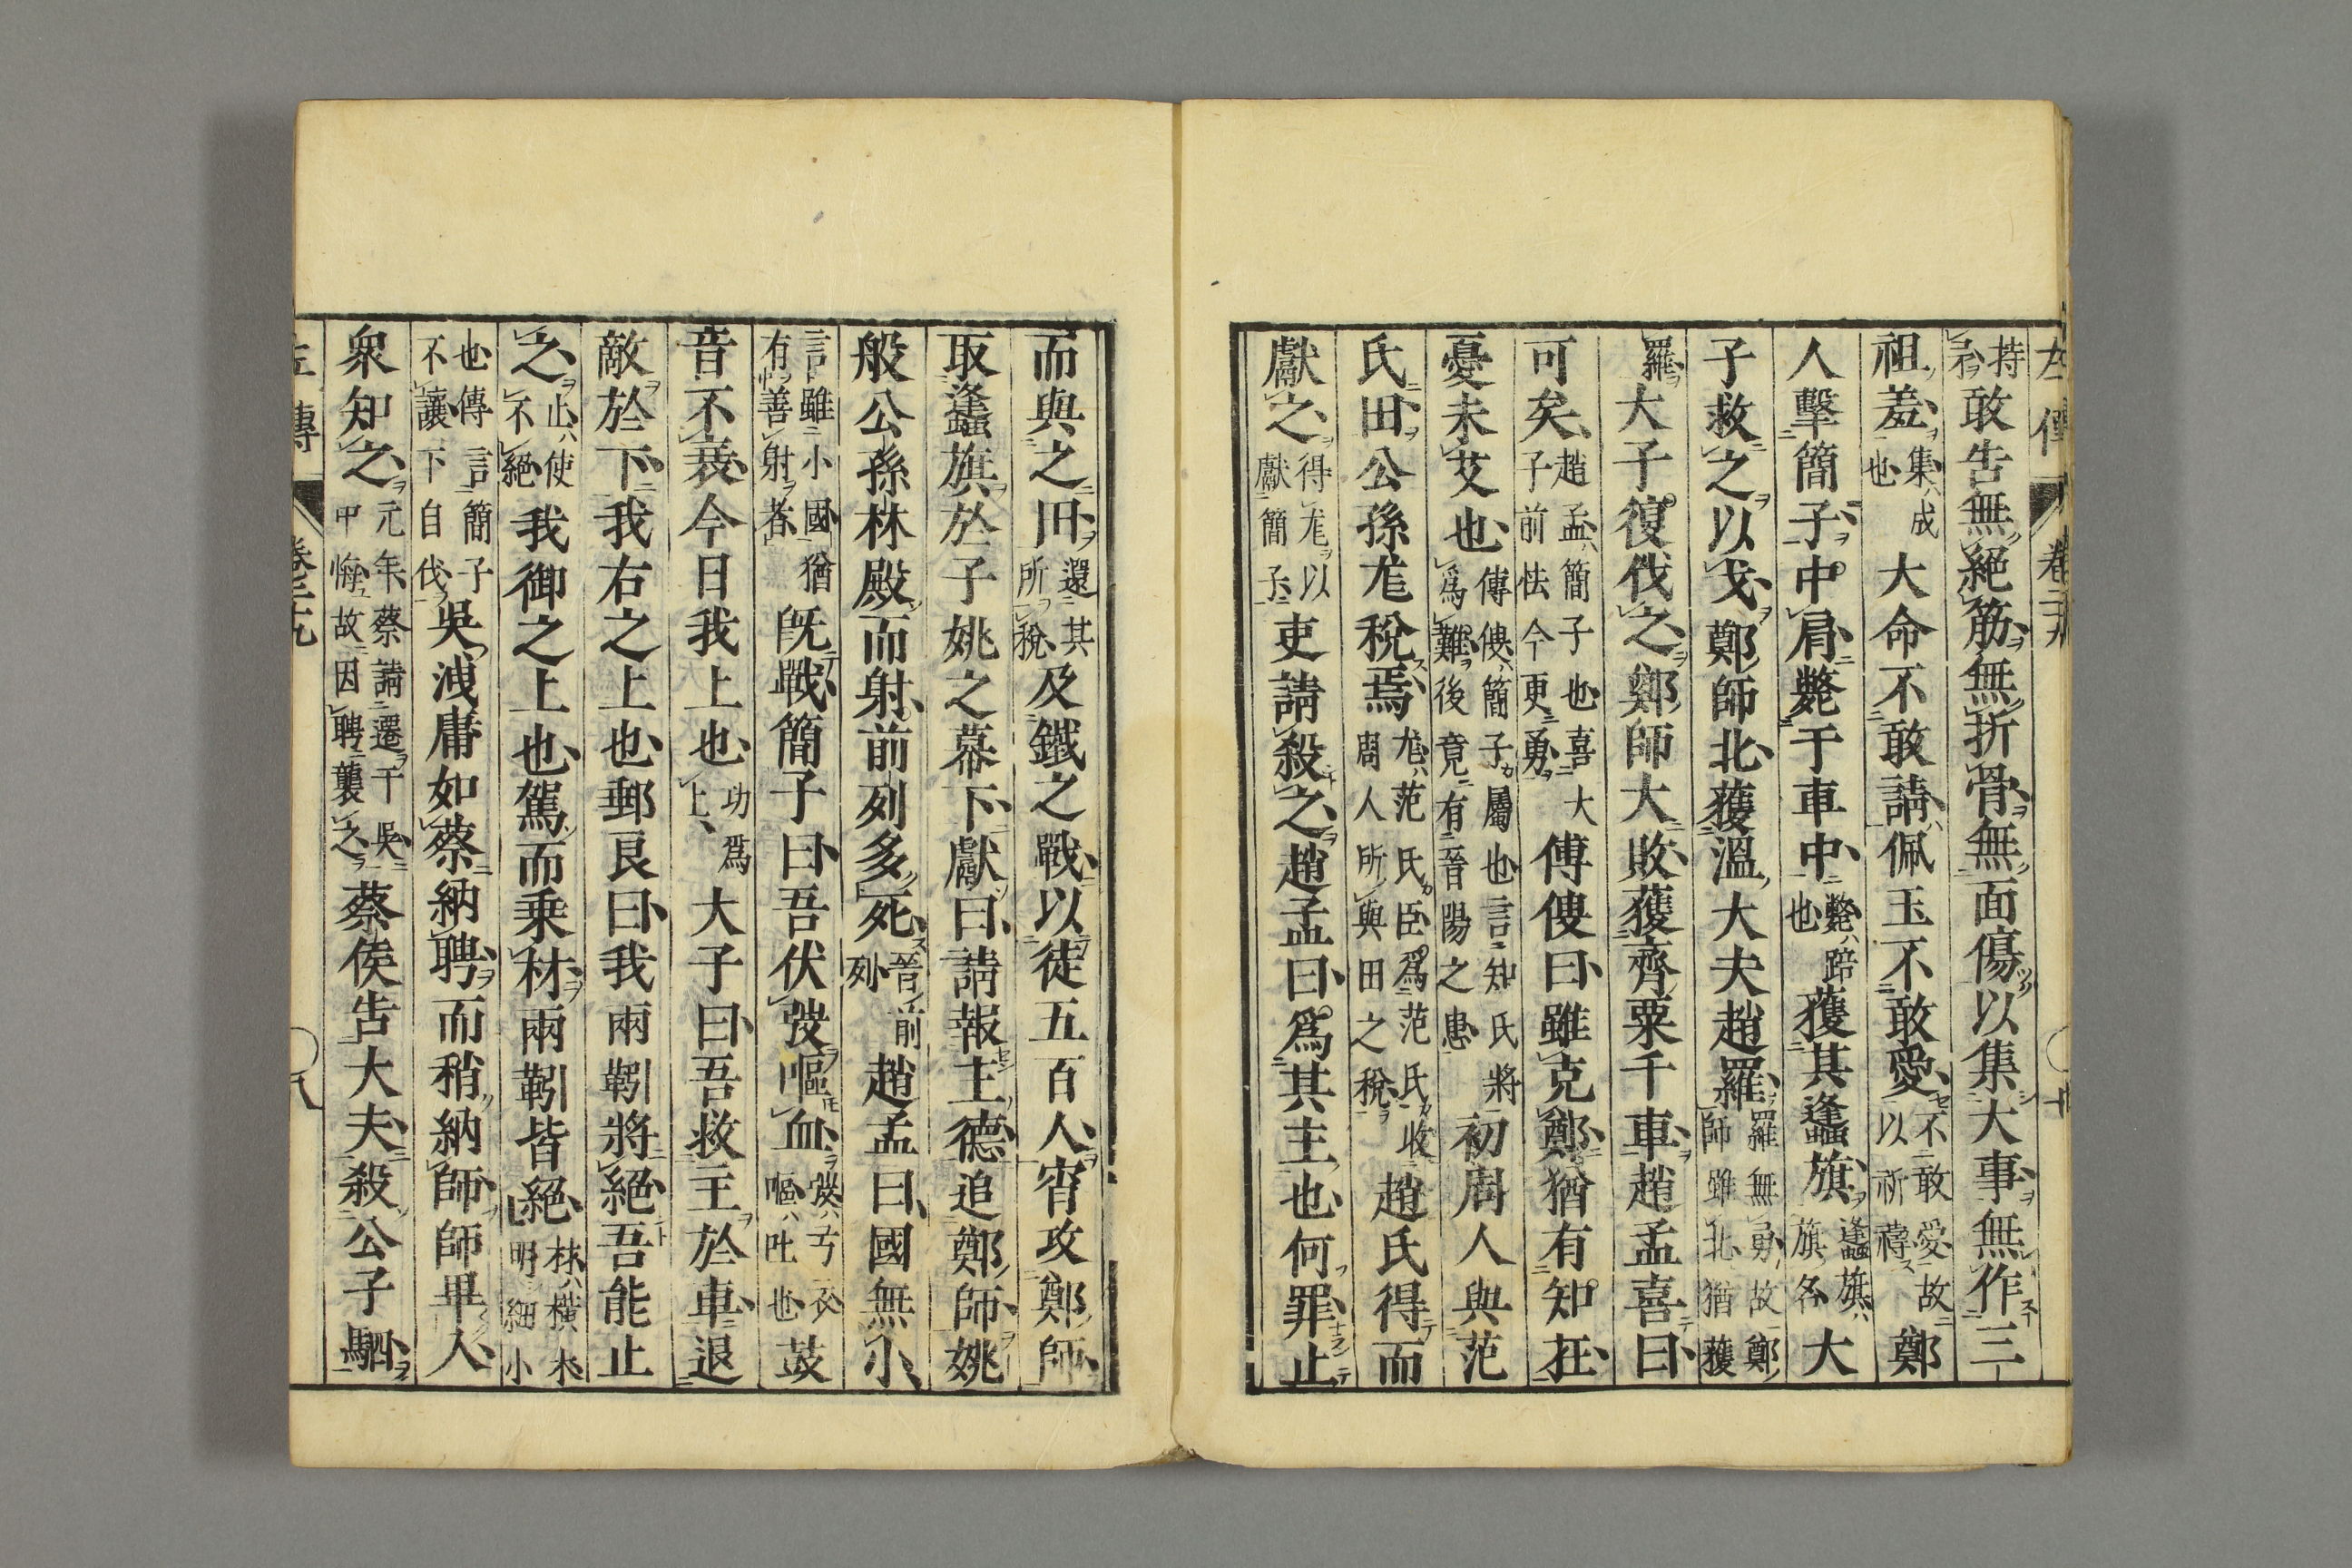 左傳 卷二十九
持矛敢告無絕筋無折骨無面傷以集大事無作三
祖羞集成也大命不敢請佩玉不敢愛不敢愛故以祈禱鄭
人擊簡子中肩斃于車中斃踣也獲其蠭旗蠭旗旗名大
子救之以戈鄭師北獲溫大夫趙羅羅無勇故鄭師雖北猶獲
羅大子復伐之鄭師大敗獲齊粟千車趙孟喜曰
可矣趙孟簡子也喜大子前怯今更勇傅傁曰雖克鄭猶有知在
憂未艾也傅傁簡子屬也言知氏將為難後竟有晉陽之患初周人與范
氏田公孫尨稅焉尨范氏臣為范氏收周人所與田之稅趙氏得而
獻之得尨以獻簡子吏請殺之趙孟曰為其主也何罪止
而與之田還其所稅及鐵之戰以徒五百人宵攻鄭師
取蠭旗於子姚之幕下獻曰請報主德追鄭師姚
般公孫林殿而射前列多死晉前列趙孟曰國無小
言雖小國猶有善射者既戰簡子曰吾伏弢嘔血弢弓衣嘔吐也鼓
音不衰今日我上也功為上大子曰吾救主於車退
敵於下我右之上也郵良曰我兩靷將絕吾能止
之止使不絕我御之上也駕而乗材兩靷皆絕材橫木明細小
也傳言簡子不讓下自伐吳洩庸如蔡納聘而稍納師師畢入
衆知之元年蔡請遷于吳中悔故因聘襲之蔡侯告大夫殺公子駟
左傳 卷二十九 八